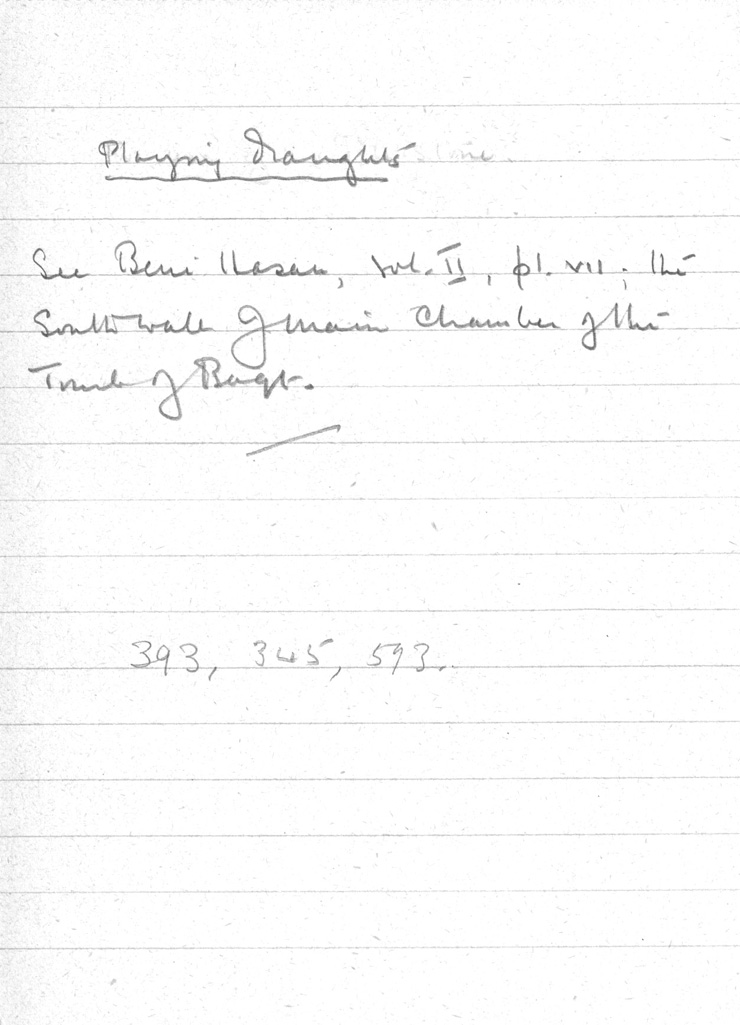 Playing Draughts
See Beni Hasan, vol. II, pl. VII; the
South wall of main Chamber of the
Tomb of Baqt.
393, 345, 593.